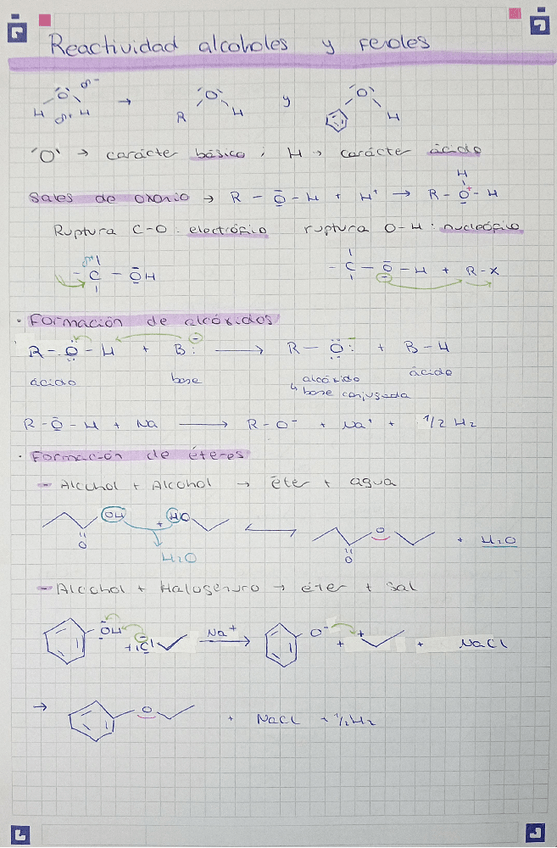 Reactividad alcoholes y fenoles
δ-
H O H → R O H y O H
δ+
"O" → carácter básico ; H → carácter ácido
H
Sales de oxonio → R - O - H + H+ → R - O+ - H
Ruptura C-O: electrófilo ruptura O-H: nucleófilo
δ+
- C - OH - C - O - H + R - X
· Formación de alcóxidos
R - O - H + B: ⟶ R - O:- + B - H
ácido base alcóxido ácido
↳ base conjugada
R - O - H + Na ⟶ R - O- + Na+ + 1/2 H2
· Formación de éteres
- Alcohol + Alcohol → éter + agua
OH + HO O + H2O
O O
H2O
- Alcohol + Halogenuro → éter + sal
OH + Cl Na+ ⟶ O- + + + NaCl
→ O + NaCl + 1/2 H2